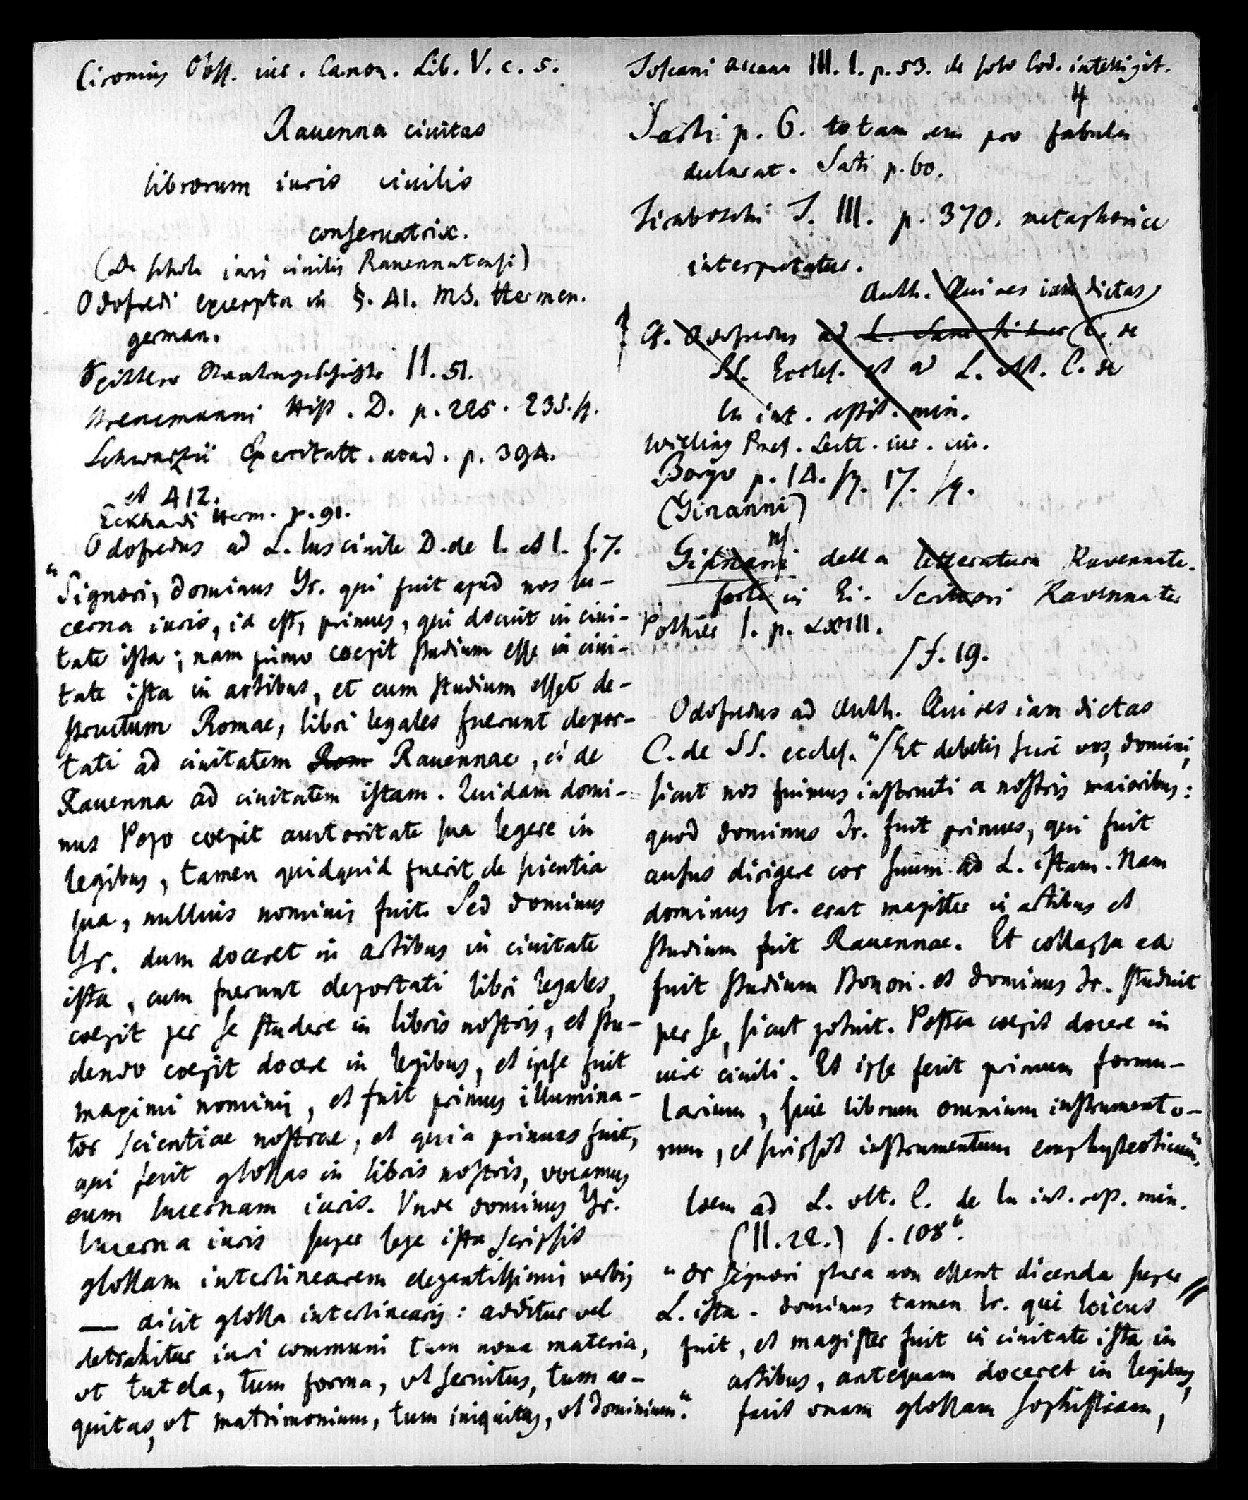 Cironius Obss. iur. Canon. Lib. V. c. 5.
Rauenna ciuitas
librorum iuris ciuilis
conseruatrix.
(De schola iuris ciuilis Rauennatensi)
Odofredi excerpta in §. 41. MS. Hermen.
german.
II. 51.
Brencmanni Hist. D. p. 225. 235. sq.
Schwarzii Exercitatt. acad. p. 394.
et 412.
Eckhardi Herm. p. 91.
Odofredus ad L. Ius ciuile D. de I. et I. f. 7.
"Signori, dominus Yr. qui fuit apud nos lu-
cerna iuris, id est, primus, qui docuit in ciui-
tate ista; nam primo coepit studium esse in ciui-
tate ista in artibus, et cum studium esset de-
structum Romae, libri legales fuerunt depor-
tati ad ciuitatem Rom Rauennae, et de
Rauenna ad ciuitatem istam. Quidam domi-
nus Pepo coepit auctoritate sua legere in
legibus, tamen quidquid fuerit de scientia
sua, nullius nominis fuit. Sed dominus
Yr. dum doceret in artibus in ciuitate
ista, cum fuerunt deportati libri legales,
coepit per se studere in libris nostris, et stu-
dendo coepit docere in legibus, et ipse fuit
maximi nominis, et fuit primus illumina-
tor scientiae nostrae, et quia primus fuit,
qui fecit glossas in libris nostris, vocamus
eum lucernam iuris. Unde dominus Yr.
lucerna iuris super lege ista scripsit
glossam interlinearem elegantissimis verbis
— dicit glossa interlinearis: additur vel
detrahitur iuri communi tum noua materia,
ut tutela, tum forma, ut seruitus, tum ae-
quitas, ut matrimonium, tum iniquitas, ut dominium."
III. I. p. 53. de solo Cod. intelligit.
4
Sarti p. 6. totam rem pro fabula
declarat. Sarti p. 60.
Tiraboschi T. III. p. 370. metaphorice
interpretatur.
Auth. Qui res iam dictas
Cf. Odofredus ad C. de
SS. Eccles. et ad L. ult. C. de
in int. restit. min.
Wieling Praef. Lectt. iur. civ.
Borgo p. 14. sq. 17. sq.
(Ginanni)
Ginanni della letteratura Ravennate.
forte in Ei. Scrittori Ravennates
Pothier I. p. LXIII.
/ f. 19.
Odofredus ad Auth. Qui res iam dictas
C. de SS. eccles. "/ Et debetis scire vos, domini,
sicut nos fuimus instructi a nostris maioribus:
quod dominus Yr. fuit primus, qui fuit
ausus dirigere cor suum ad L. istam. Nam
dominus Yr. erat magister in artibus et
studium fuit Rauennae. Et collapsa ea
fuit studium Bonon. et dominus Yr. studuit
per se, sicut potuit. Postea coepit docere in
iure ciuili. Et ipse fecit primum formu-
larium, siue librum omnium instrumento-
rum, et scripsit instrumentum emphyteoticum".
Idem ad L. ult. C. de in int. rest. min.
(II. 22.) f. 108".
"Or signori plura non essent dicenda super
L. ista. dominus tamen Yr. qui loicus
fuit, et magister fuit in ciuitate ista in
artibus, antequam doceret in legibus,
fecit unam glossam sophisticam,